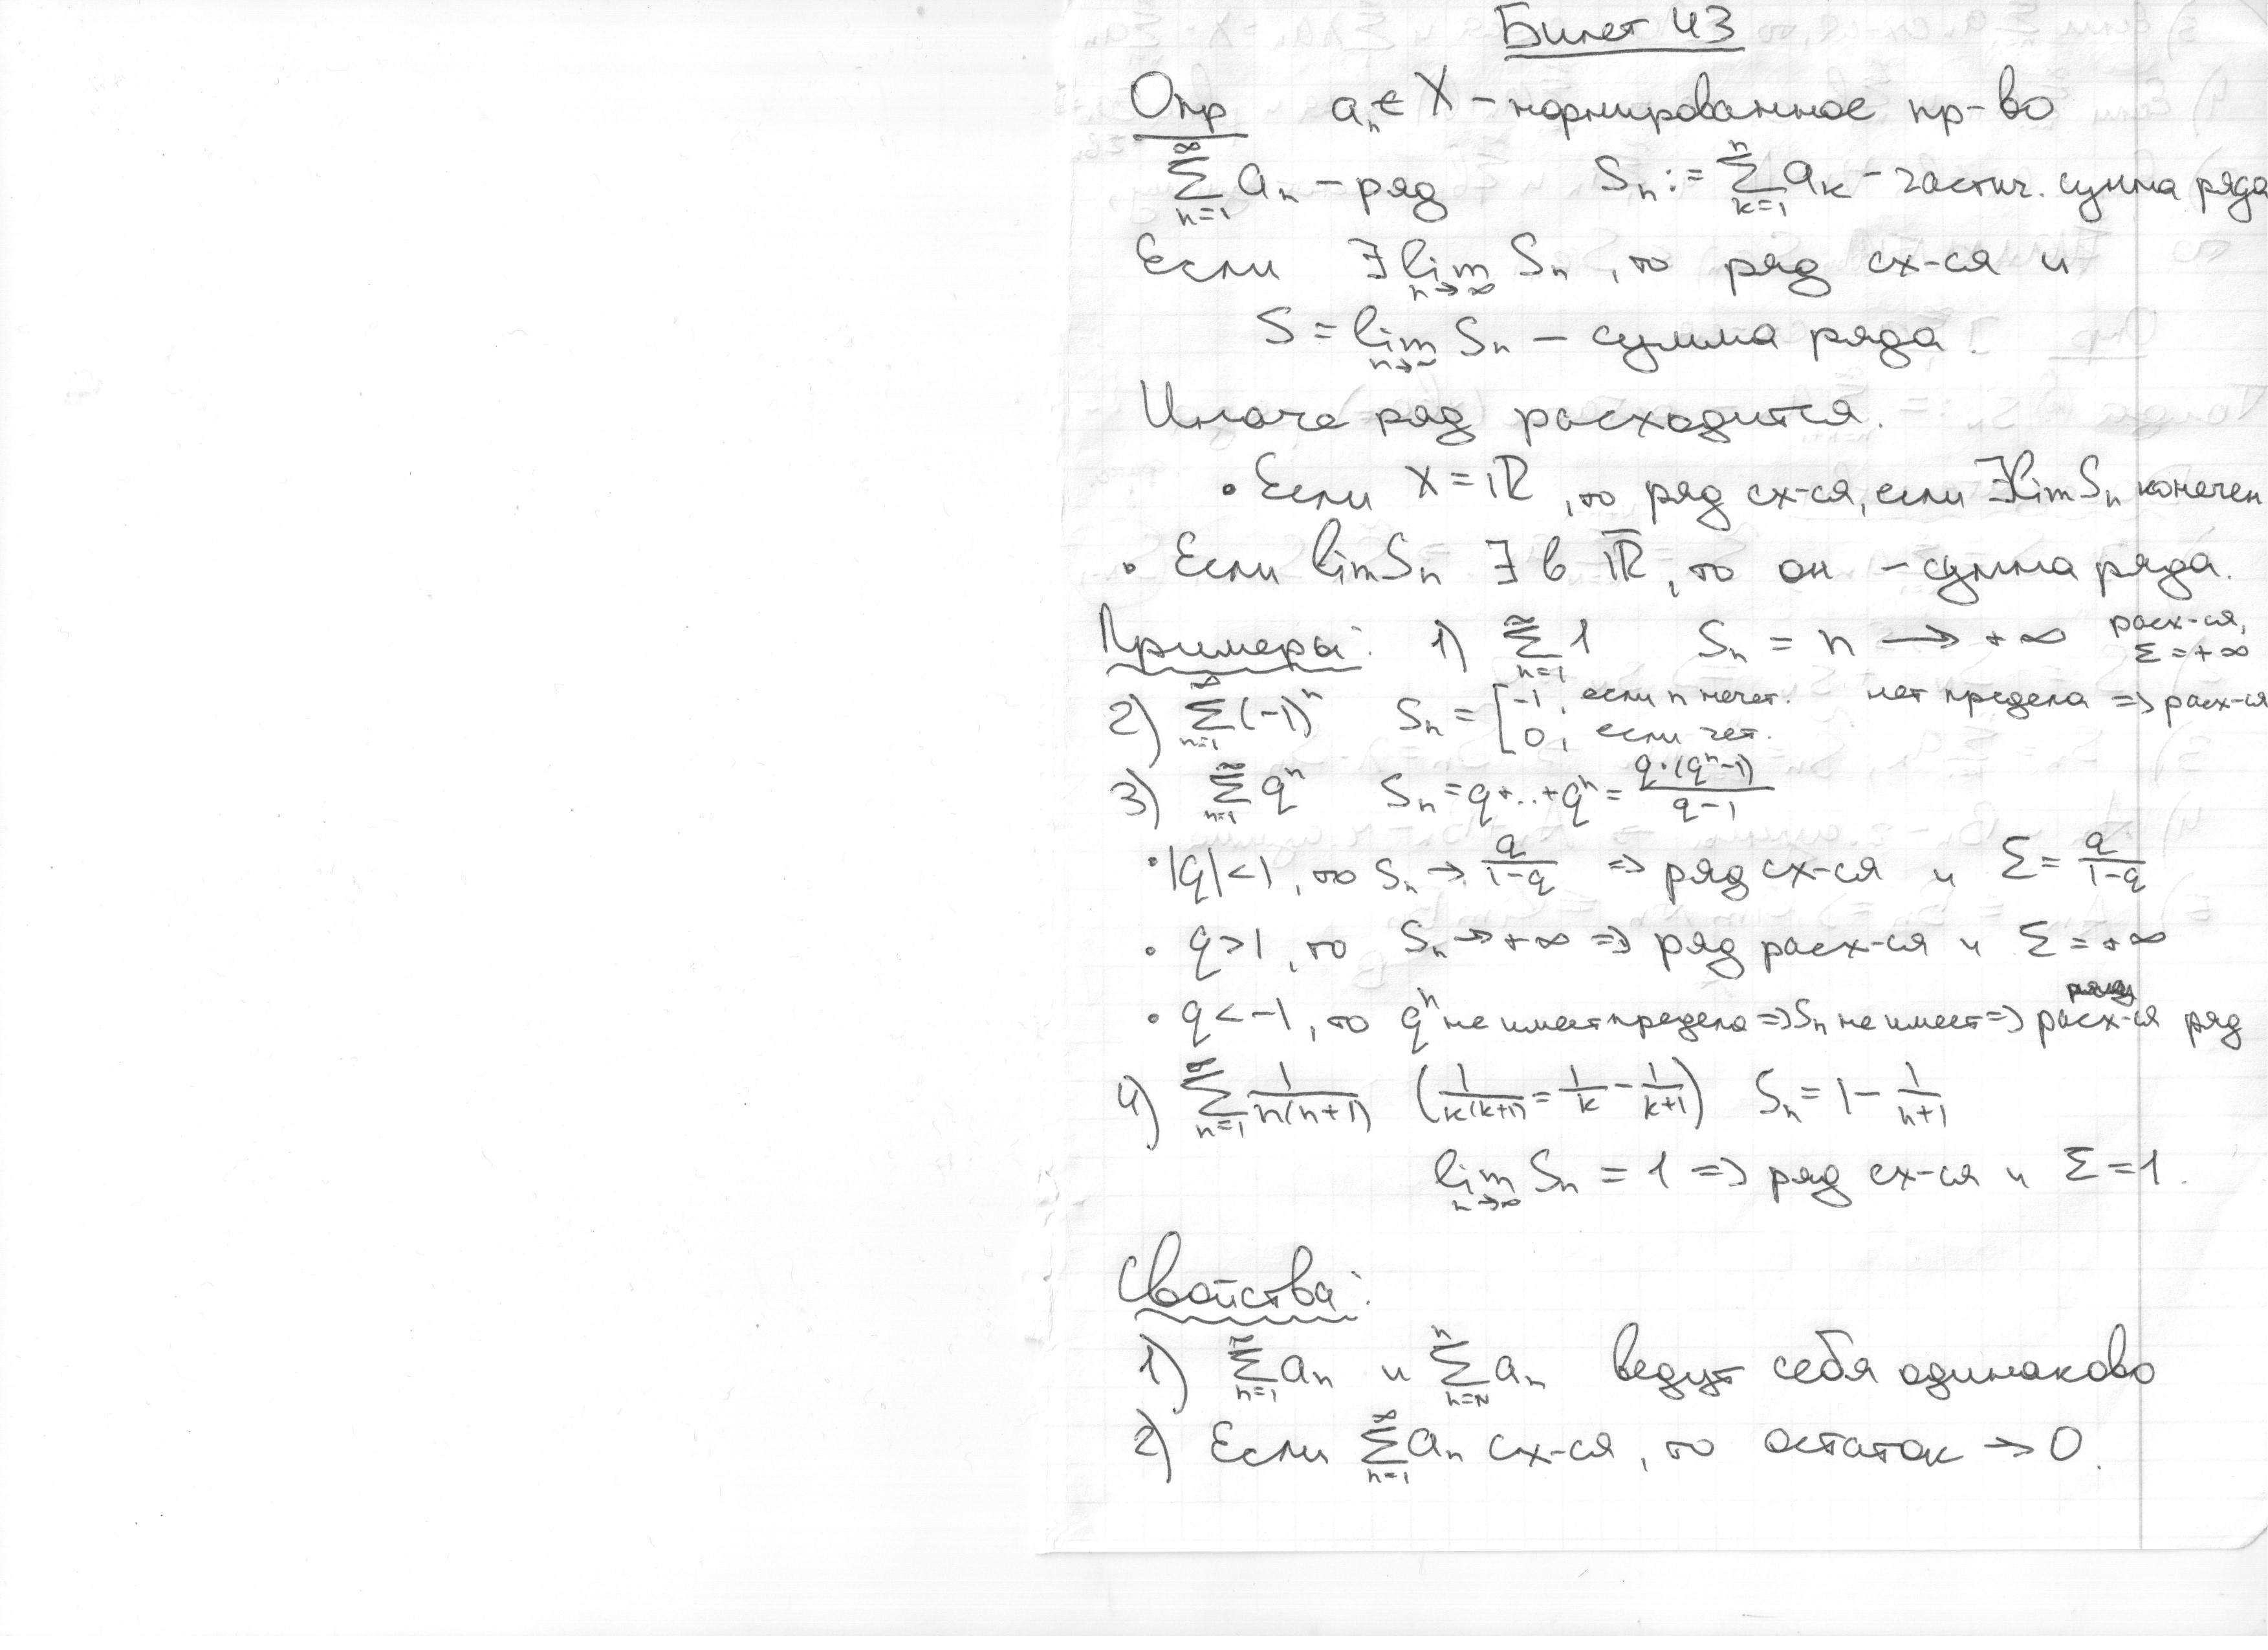 Билет 43
Опр aₙ ∈ X – нормированное пр-во
∑_{n=1}^{∞} aₙ – ряд Sₙ := ∑_{k=1}^{n} aₖ – частич. сумма ряда
Если ∃ lim_{n→∞} Sₙ, то ряд сх-ся и
S = lim_{n→∞} Sₙ – сумма ряда.
Иначе ряд расходится.
• Если X = ℝ, то ряд сх-ся, если ∃ lim Sₙ конечен
• Если lim Sₙ ∃ в ℝ̅, то он – сумма ряда.
Примеры: 1) ∑_{n=1}^{∞} 1 Sₙ = n → +∞ расх-ся, Σ = +∞
2) ∑_{n=1}^{∞} (-1)ⁿ Sₙ = [ -1, если n нечет. нет предела => расх-ся
0, если чет.
3) ∑_{n=1}^{∞} qⁿ Sₙ = q+..+qⁿ = q·(qⁿ-1)/(q-1)
• |q|<1, то Sₙ → q/(1-q) => ряд сх-ся и Σ = q/(1-q)
• q>1, то Sₙ → +∞ => ряд расх-ся и Σ = +∞
• q<-1, то qⁿ не имеет предела => Sₙ не имеет => расх-ся ряд
4) ∑_{n=1}^{∞} 1/(n(n+1)) (1/(k(k+1)) = 1/k - 1/(k+1)) Sₙ = 1 - 1/(n+1)
lim_{n→∞} Sₙ = 1 => ряд сх-ся и Σ = 1.
Свойства:
1) ∑_{n=1}^{∞} aₙ и ∑_{n=N}^{n} aₙ ведут себя одинаково
2) Если ∑_{n=1}^{∞} aₙ сх-ся, то остаток → 0.